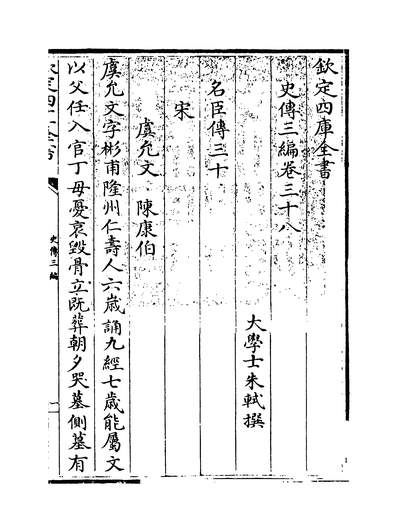 欽定四庫全書
史傳三編卷三十八
大學士朱軾撰
名臣傳三十
宋
虞允文 陳康伯
虞允文字彬甫隆州仁壽人六歲誦九經七歲能屬文
以父任入官丁母憂哀毀骨立既葬朝夕哭墓側墓有
史傳三編